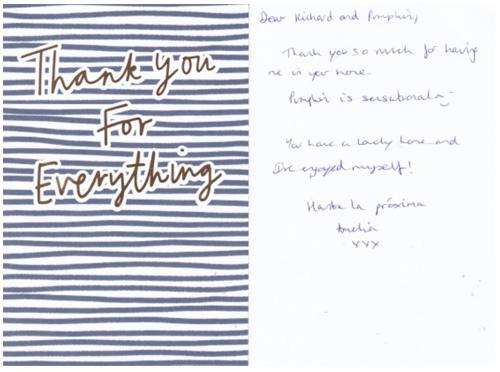 Thank you
For
Everything
Dear Richard and Pumpkin,
Thank you so much for having
me in your home.
Pumpkin is sensational~
You have a lovely home and
I've enjoyed myself!
Hasta la próxima
Amelia
xxx